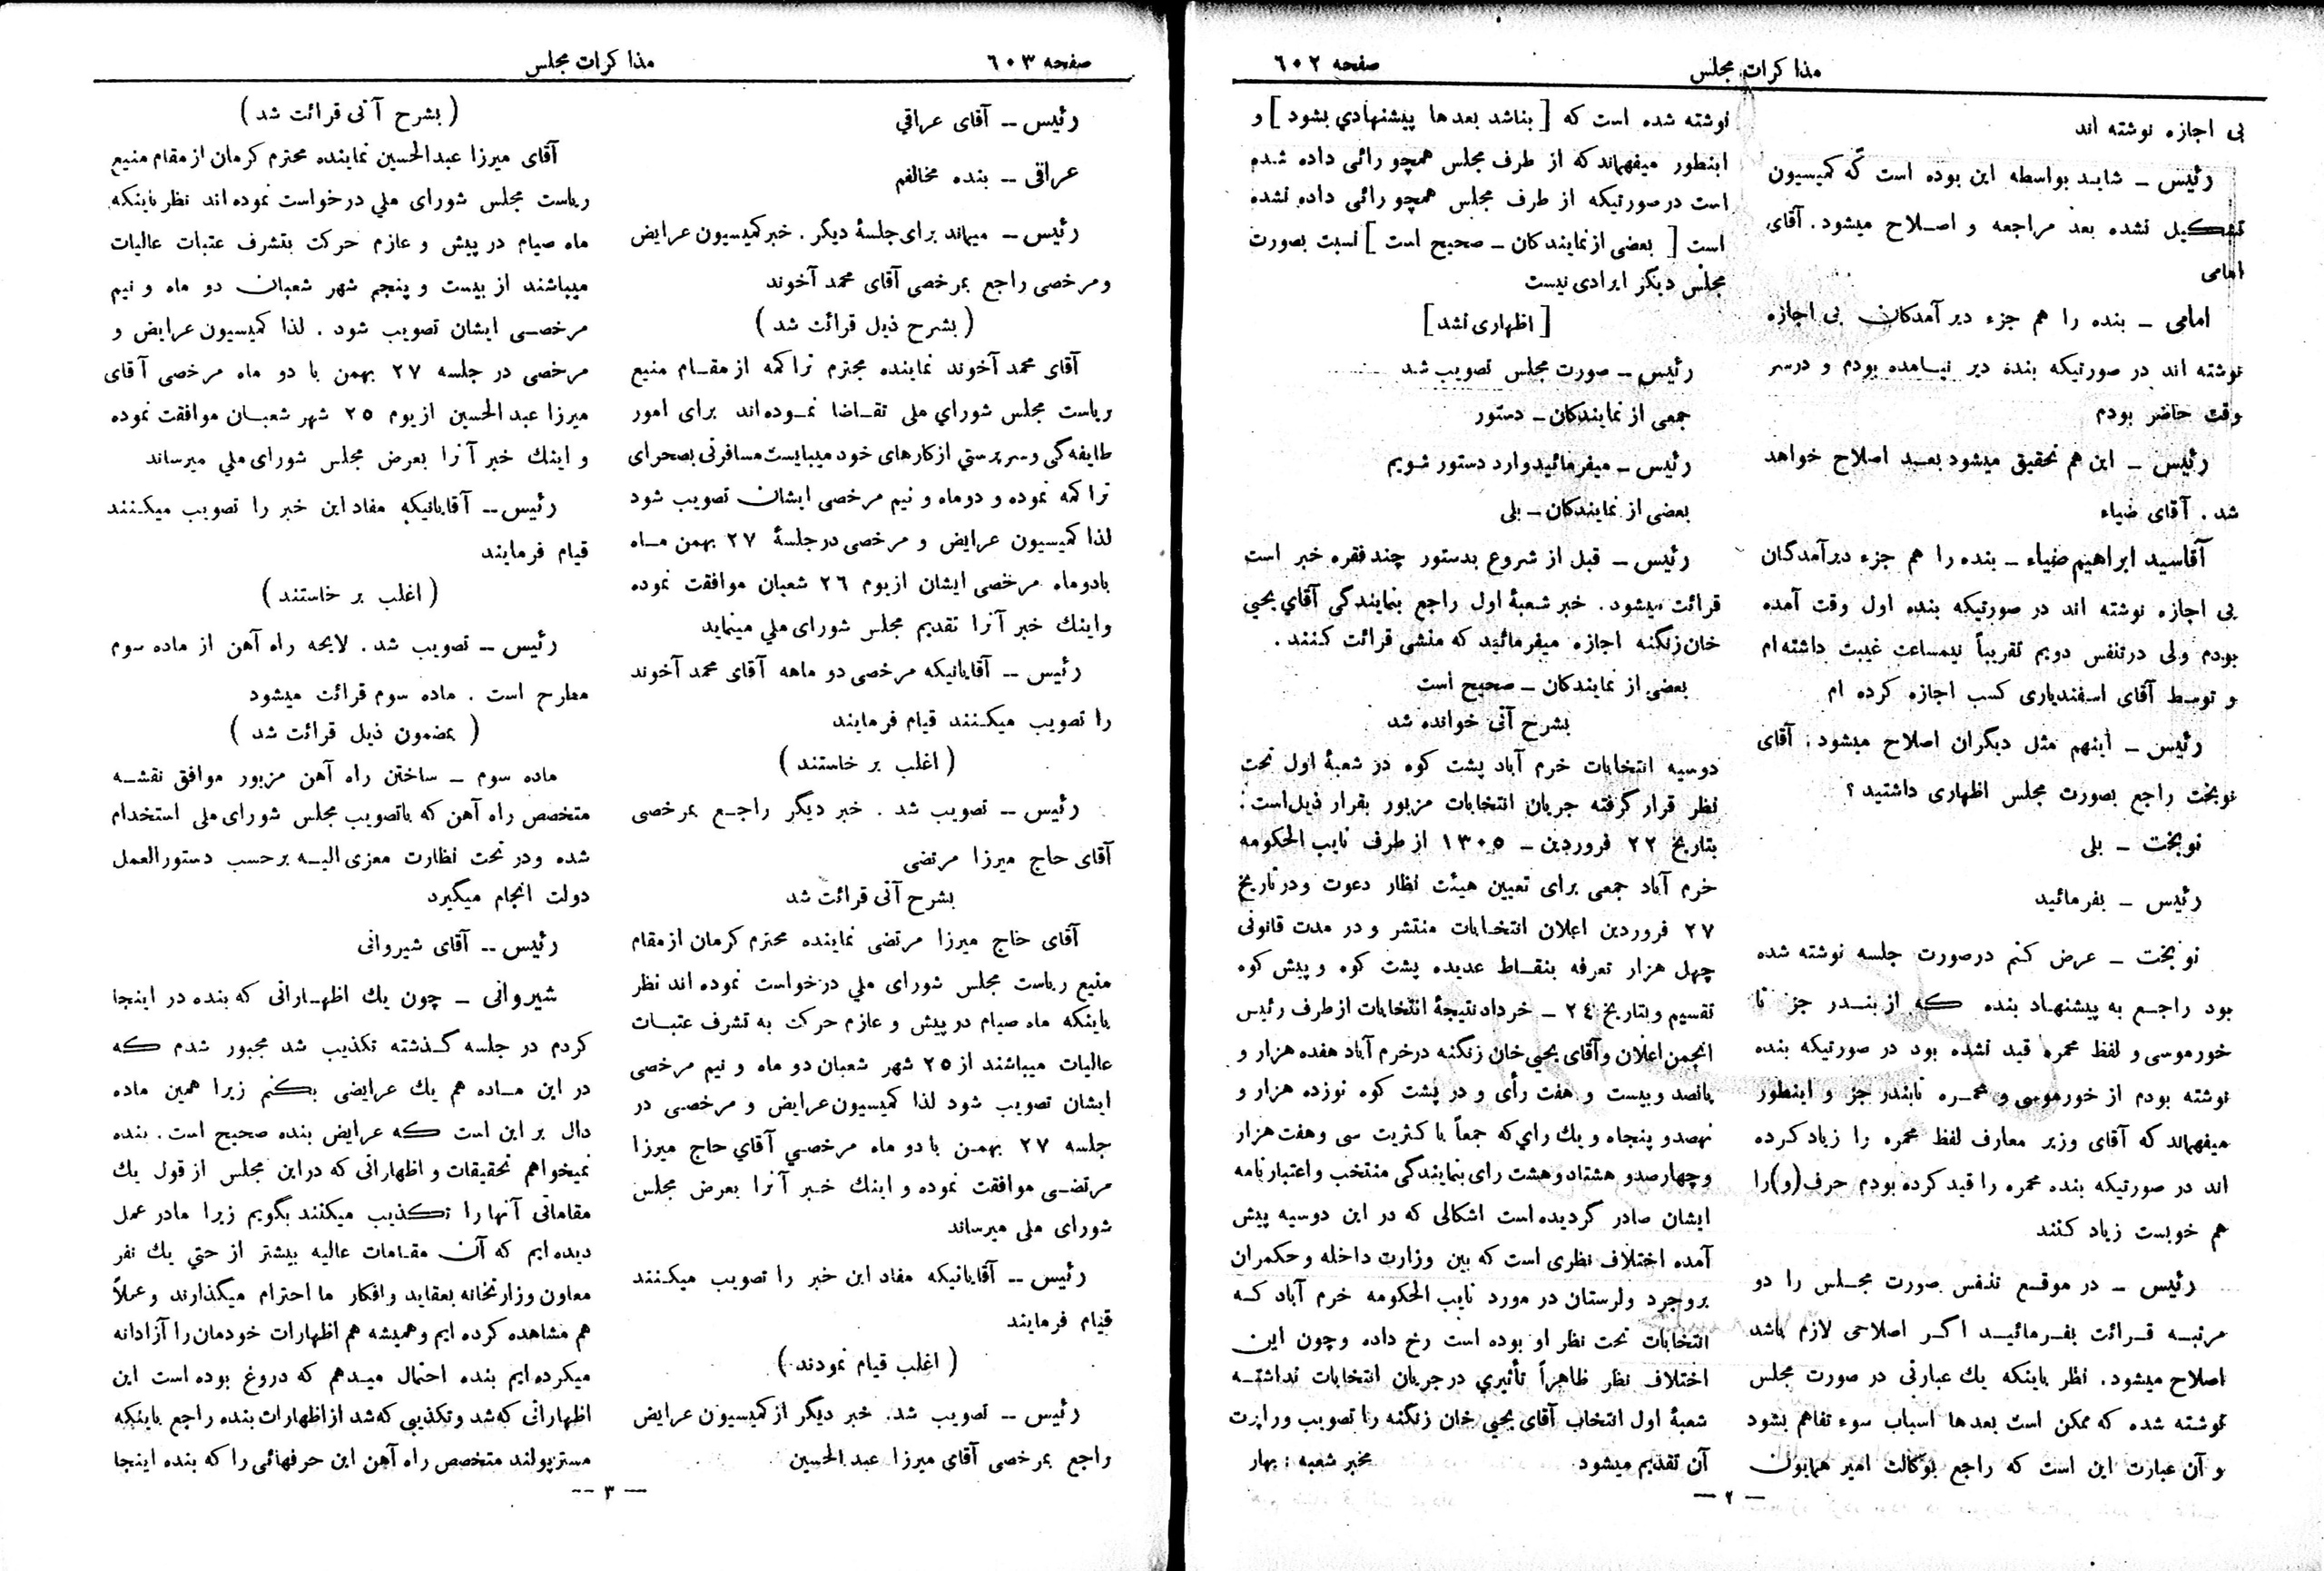 مذاکرات مجلس
صفحه ٦٠٢
بی اجازه نوشته اند
رئیس ـ شاید بواسطه این بوده است که کمیسیون
تشکیل نشده بعد مراجعه و اصلاح میشود. آقای
امامی
امامی ـ بنده را هم جزء دیر آمدکان بی اجازه
نوشته اند در صورتیکه بنده دیر نیامده بودم و درسر
وقت حاضر بودم
رئیس ـ این هم تحقیق میشود بعد اصلاح خواهد
شد . آقای ضیاء
آقاسید ابراهیم ضیاء ـ بنده را هم جزء دیرآمدگان
بی اجازه نوشته اند در صورتیکه بنده اول وقت آمده
بودم ولی درتنفس دویم تقریباً نیمساعت غیبت داشته ام
و توسط آقای اسفندیاری کسب اجازه کرده ام
رئیس ـ اینهم مثل دیگران اصلاح میشود . آقای
نوبخت راجع بصورت مجلس اظهاری داشتید ؟
نوبخت ـ بلی
رئیس ـ بفرمائید
نوبخت ـ عرض کنم درصورت جلسه نوشته شده
بود راجع به پیشنهاد بنده که از بندر جز تا
خورموسی و لفظ محمره قید نشده بود در صورتیکه بنده
نوشته بودم از خورموسی و محمره تابندر جز و اینطور
میفهماند که آقای وزیر معارف لفظ محمره را زیاد کرده
اند در صورتیکه بنده محمره را قید کرده بودم حرف (و) را
هم خوبست زیاد کنند
رئیس ـ در موقع تنفس صورت مجلس را دو
مرتبه قرائت بفرمائید اگر اصلاحی لازم باشد
اصلاح میشود. نظر باینکه یك عبارتی در صورت مجلس
نوشته شده که ممکن است بعدها اسباب سوء تفاهم بشود
و آن عبارت این است که راجع بوکالت امیر همایون
نوشته شده است که [ بناشد بعدها پیشنهادي بشود ] و
اینطور میفهماند که از طرف مجلس همچو رائی داده شده
است در صورتیکه از طرف مجلس همچو رائی داده نشده
است [ بعضی از نمایندکان ـ صحیح است ] نسبت بصورت
مجلس دیگر ایرادی نیست
[ اظهاری نشد ]
رئیس ـ صورت مجلس تصویب شد
جمعی از نمایندکان ـ دستور
رئیس ـ میفرمائید وارد دستور شویم
بعضی از نمایندکان ـ بلی
رئیس ـ قبل از شروع بدستور چند فقره خبر است
قرائت میشود. خبر شعبۀ اول راجع بنمایندگی آقاي یحیی
خان زنگنه اجازه میفرمائید که منشی قرائت کنند .
بعضی از نمایندکان ـ صحیح است
بشرح آتی خوانده شد
دوسیه انتخابات خرم آباد پشت کوه در شعبۀ اول تحت
نظر قرار گرفته جریان انتخابات مزبور بقرار ذیل است :
بتاریخ ٢٢ فروردین ـ ١٣٠٥ از طرف نایب الحکومه
خرم آباد جمعی برای تعیین هیئت نظار دعوت ودر تاریخ
٢٧ فروردین اعلان انتخابات منتشر و در مدت قانونی
چهل هزار تعرفه بنقاط عدیده پشت کوه و پیش کوه
تقسیم و بتاریخ ٢٤ ـ خرداد نتیجۀ انتخابات از طرف رئیس
انجمن اعلان و آقای یحیی خان زنگنه در خرم آباد هفده هزار و
پانصد و بیست و هفت رأی و در پشت کوه نوزده هزار و
نهصد و پنجاه و یك راي که جمعاً با کثریت سی و هفت هزار
و چهارصدو هشتاد و هشت رای بنمایندگی منتخب و اعتبارنامه
ایشان صادر گردیده است اشکالی که در این دوسیه پیش
آمده اختلاف نظری است که بین وزارت داخله و حکمران
بروجرد ولرستان در مورد نایب الحکومه خرم آباد که
انتخابات تحت نظر او بوده است رخ داده و چون این
اختلاف نظر ظاهراً تأثیري در جریان انتخابات نداشته
شعبۀ اول انتخاب آقای یحیی خان زنگنه را تصویب و راپرت
آن تقدیم میشود مخبر شعبه : بهار
— ٢ —
صفحه ٦٠٣
مذاکرات مجلس
رئیس ـ آقای عراقي
عراقی ـ بنده مخالفم
رئیس ـ میماند برای جلسۀ دیگر . خبر کمیسیون عرایض
و مرخصی راجع بمرخصی آقای محمد آخوند
( بشرح ذیل قرائت شد )
آقای محمد آخوند نماینده محترم تراکمه از مقام منیع
ریاست مجلس شوراي ملی تقاضا نموده اند برای امور
طایفه گی و سرپرستي از کارهای خود میبایست مسافرتی بصحرای
تراکمه نموده و دوماه و نیم مرخصی ایشان تصویب شود
لذا کمیسیون عرایض و مرخصی در جلسۀ ٢٧ بهمن ماه
بادوماه مرخصی ایشان از یوم ٢٦ شعبان موافقت نموده
واینك خبر آنرا تقدیم مجلس شورای ملي مینماید
رئیس ـ آقایانیکه مرخصی دو ماهه آقای محمد آخوند
را تصویب میکنند قیام فرمایند
( اغلب بر خاستند )
رئیس ـ تصویب شد . خبر دیگر راجع بمرخصی
آقای حاج میرزا مرتضی
بشرح آتی قرائت شد
آقای حاج میرزا مرتضی نماینده محترم کرمان از مقام
منیع ریاست مجلس شورای ملي درخواست نموده اند نظر
باینکه ماه صیام در پیش و عازم حرکت به تشرف عتبات
عالیات میباشند از ٢٥ شهر شعبان دو ماه و نیم مرخصی
ایشان تصویب شود لذا کمیسیون عرایض و مرخصی در
جلسه ٢٧ بهمن با دو ماه مرخصي آقاي حاج میرزا
مرتضی موافقت نموده و اینك خبر آنرا بعرض مجلس
شورای ملی میرساند
رئیس ـ آقایانیکه مفاد این خبر را تصویب میکنند
قیام فرمایند
( اغلب قیام نمودند )
رئیس ـ تصویب شد. خبر دیگر از کمیسیون عرایض
راجع بمرخصی آقای میرزا عبدالحسین
( بشرح آتی قرائت شد )
آقای میرزا عبدالحسین نماینده محترم کرمان از مقام منیع
ریاست مجلس شورای ملي درخواست نموده اند نظر باینکه
ماه صیام در پیش و عازم حرکت بتشرف عتبات عالیات
میباشند از بیست و پنجم شهر شعبان دو ماه و نیم
مرخصی ایشان تصویب شود . لذا کمیسیون عرایض و
مرخصی در جلسه ٢٧ بهمن با دو ماه مرخصی آقای
میرزا عبد الحسین از یوم ٢٥ شهر شعبان موافقت نموده
و اینك خبر آنرا بعرض مجلس شورای ملي میرساند
رئیس ـ آقایانیکه مفاد این خبر را تصویب میکنند
قیام فرمایند
( اغلب بر خاستند )
رئیس ـ تصویب شد . لایحه راه آهن از ماده سوم
مطرح است . ماده سوم قرائت میشود
( بمضمون ذیل قرائت شد )
ماده سوم ـ ساختن راه آهن مزبور موافق نقشه
متخصص راه آهن که باتصویب مجلس شورای ملی استخدام
شده ودر تحت نظارت معزی الیه برحسب دستورالعمل
دولت انجام میگیرد
رئیس ـ آقای شیروانی
شیروانی ـ چون یك اظهاراتی که بنده در اینجا
کردم در جلسه گذشته تکذیب شد مجبور شدم که
در این ماده هم یك عرایضی بکنم زیرا همین ماده
دال بر این است که عرایض بنده صحیح است. بنده
نمیخواهم تحقیقات و اظهاراتی که دراین مجلس از قول یك
مقاماتی آنها را تکذیب میکنند بگویم زیرا مادر عمل
دیده ایم که آن مقامات عالیه بیشتر از حتي یك نفر
معاون وزارتخانه بعقاید و افکار ما احترام میگذارند و عملاً
هم مشاهده کرده ایم و همیشه هم اظهارات خودمان را آزادانه
میکرده ایم بنده احتمال میدهم که دروغ بوده است این
اظهاراتی که شد و تکذیبی که شد از اظهارات بنده راجع باینکه
مستر پولند متخصص راه آهن این حرفهائی را که بنده اینجا
— ٣ —